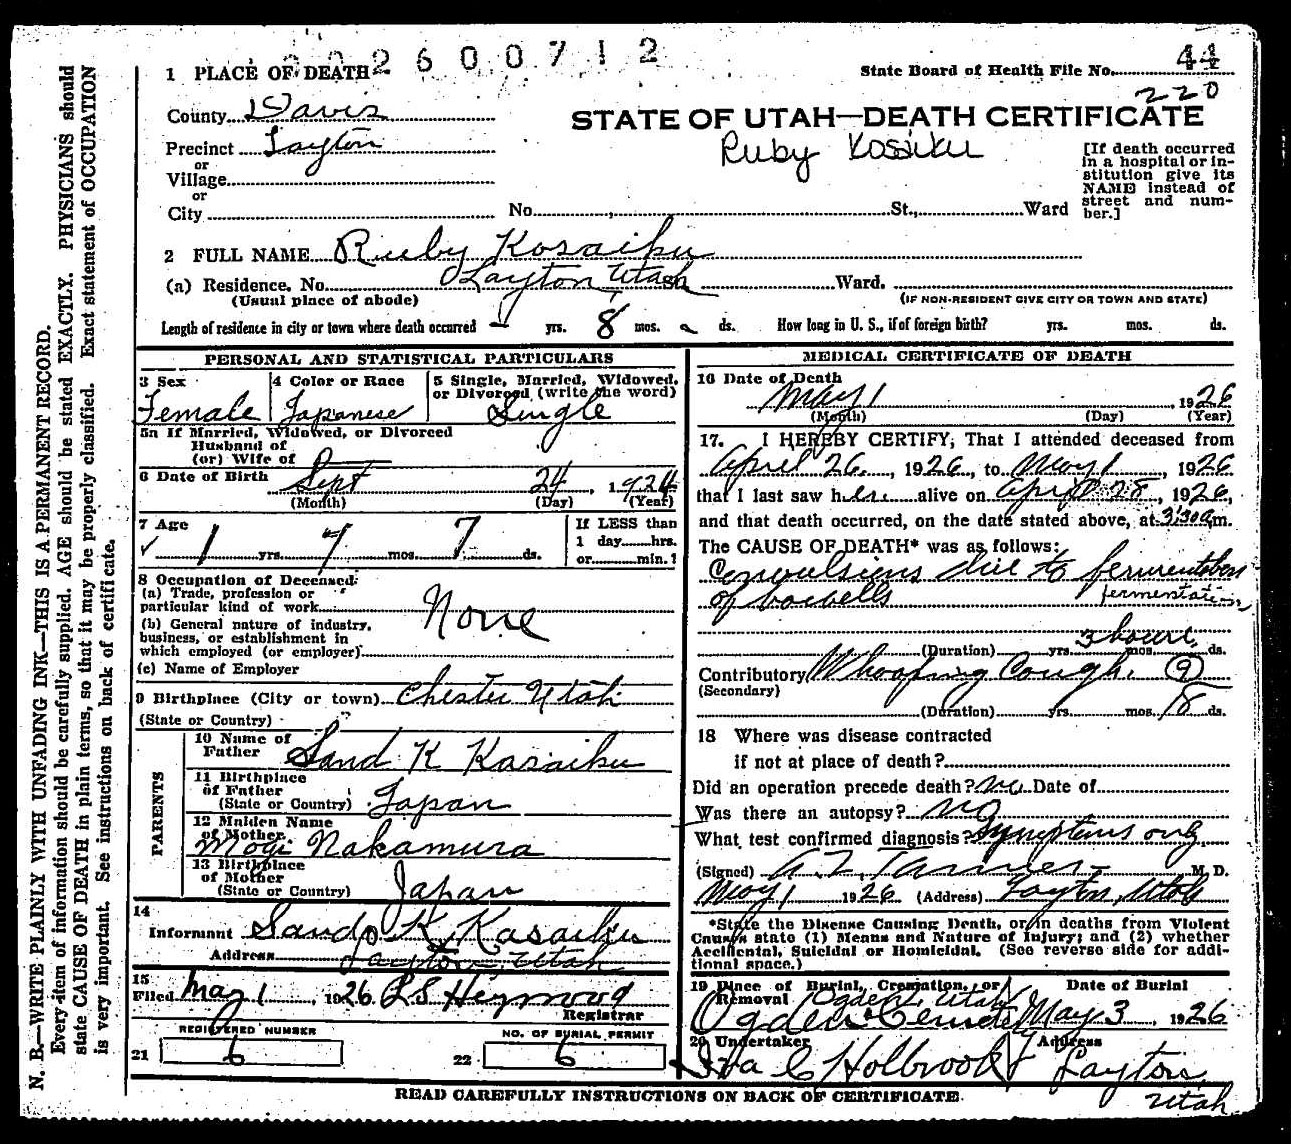 2600712
1 PLACE OF DEATH
State Board of Health File No. 44
220
County Davis
STATE OF UTAH—DEATH CERTIFICATE
Precinct Layton
Ruby Kosaiku
or
Village
or
City
No. St., Ward
[If death occurred
in a hospital or in-
stitution give its
NAME instead of
street and num-
ber.]
2 FULL NAME Ruby Kosaiku
(a) Residence. No. Layton, Utah Ward.
(Usual place of abode)
(IF NON-RESIDENT GIVE CITY OR TOWN AND STATE)
Length of residence in city or town where death occurred – yrs. 8 mos. ds. How long in U. S., if of foreign birth? yrs. mos. ds.
PERSONAL AND STATISTICAL PARTICULARS
3 Sex
Female
4 Color or Race
Japanese
5 Single, Married, Widowed,
or Divorced (write the word)
Single
5a If Married, Widowed, or Divorced
Husband of
(or) Wife of
6 Date of Birth Sept 24, 1924
(Month) (Day) (Year)
7 Age
1 yrs. 7 mos. 7 ds.
If LESS than
1 day hrs.
or min.?
8 Occupation of Deceased:
(a) Trade, profession or
particular kind of work
None
(b) General nature of industry,
business, or establishment in
which employed (or employer)
(c) Name of Employer
9 Birthplace (City or town) Chester Utah
(State or Country)
PARENTS
10 Name of
Father Sand K Kasaiku
11 Birthplace
of Father
(State or Country) Japan
12 Maiden Name
of Mother
Nakamura
13 Birthplace
of Mother
(State or Country) Japan
14
Informant Sando K. Kasaiku
Address Layton, Utah
15
Filed May 1, 1926 L S Heywood
Registrar
REGISTERED NUMBER
21 6
NO. OF BURIAL PERMIT
22 6
MEDICAL CERTIFICATE OF DEATH
16 Date of Death
May 1, 1926
(Month) (Day) (Year)
17. I HEREBY CERTIFY, That I attended deceased from
April 26, 1926, to May 1, 1926
that I last saw her alive on April 28, 1926,
and that death occurred, on the date stated above, at 3:30 a m.
The CAUSE OF DEATH* was as follows:
Convulsions due to fermentation
of bowells fermentation
3 hours
(Duration) yrs. mos. ds.
Contributory Whooping Cough. 9
(Secondary)
(Duration) yrs. mos. 18 ds.
18 Where was disease contracted
if not at place of death?
Did an operation precede death? no Date of
Was there an autopsy? no
What test confirmed diagnosis? Symptoms only
(Signed) A. Z. Tanner M. D.
May 1 1926 (Address) Layton, Utah
*State the Disease Causing Death, or in deaths from Violent
Causes state (1) Means and Nature of Injury; and (2) whether
Accidental, Suicidal or Homicidal. (See reverse side for addi-
tional space.)
19 Place of Burial, Cremation, or
Removal Ogden, Utah
Ogden Cemetery
Date of Burial
May 3, 1926
20 Undertaker
Ira C Holbrook
Address
Layton,
Utah
READ CAREFULLY INSTRUCTIONS ON BACK OF CERTIFICATE.
N. B.—WRITE PLAINLY WITH UNFADING INK—THIS IS A PERMANENT RECORD.
Every item of information should be carefully supplied. AGE should be stated EXACTLY. PHYSICIANS should
state CAUSE OF DEATH in plain terms, so that it may be properly classified. Exact statement of OCCUPATION
is very important. See instructions on back of certificate.